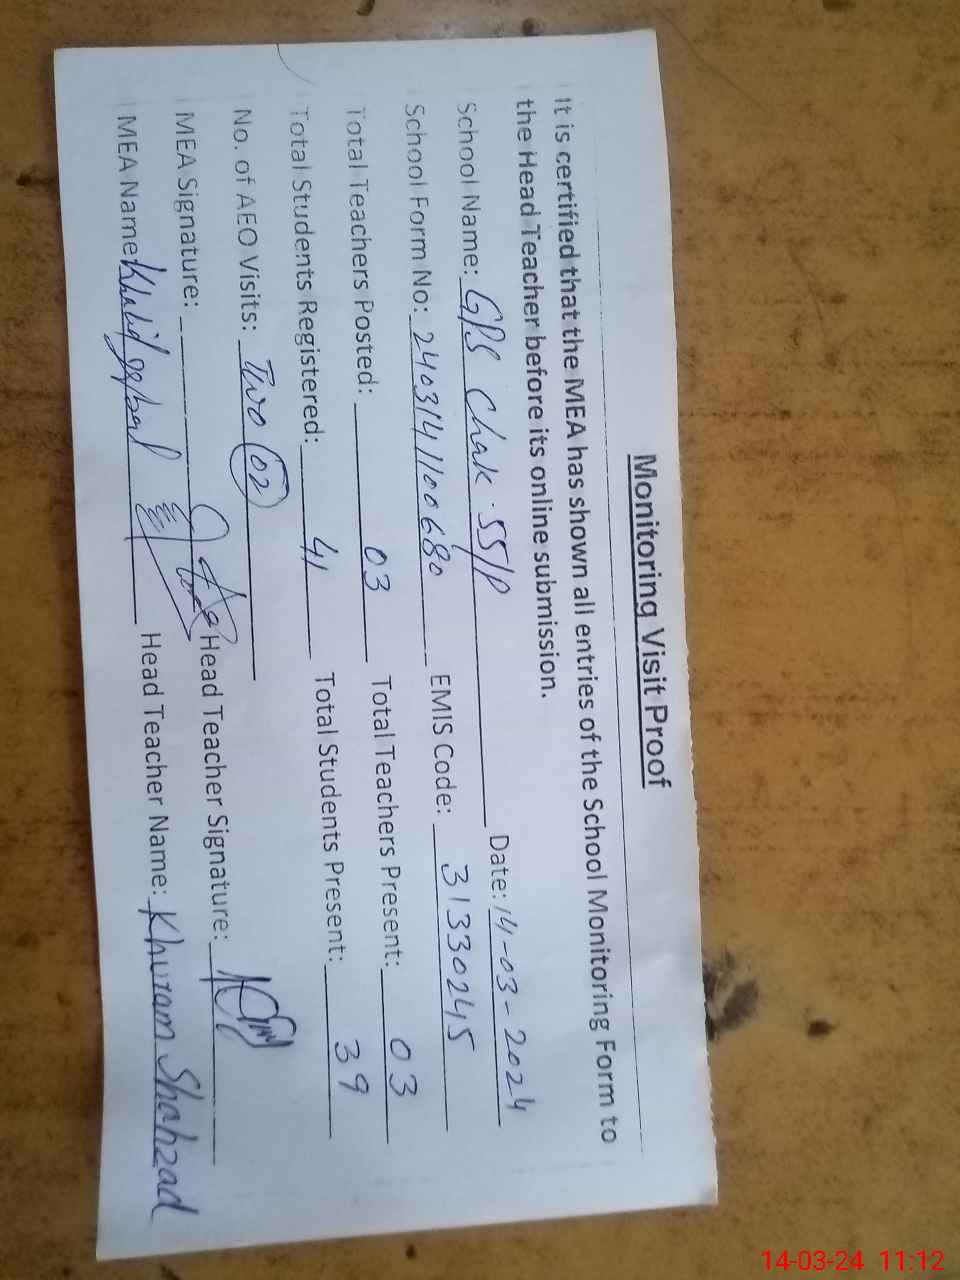 Monitoring Visit Proof
It is certified that the MEA has shown all entries of the School Monitoring Form to
the Head Teacher before its online submission.
School Name: GPS Chak 55/P Date: 14-03-2024
School Form No: 2403141100680 EMIS Code: 31330245
Total Teachers Posted: 03 Total Teachers Present: 03
Total Students Registered: 41 Total Students Present: 39
No. of AEO Visits: Two 02
MEA Signature: Head Teacher Signature:
MEA Name: Khalid Iqbal Head Teacher Name: Khuram Shahzad
14-03-24 11:12